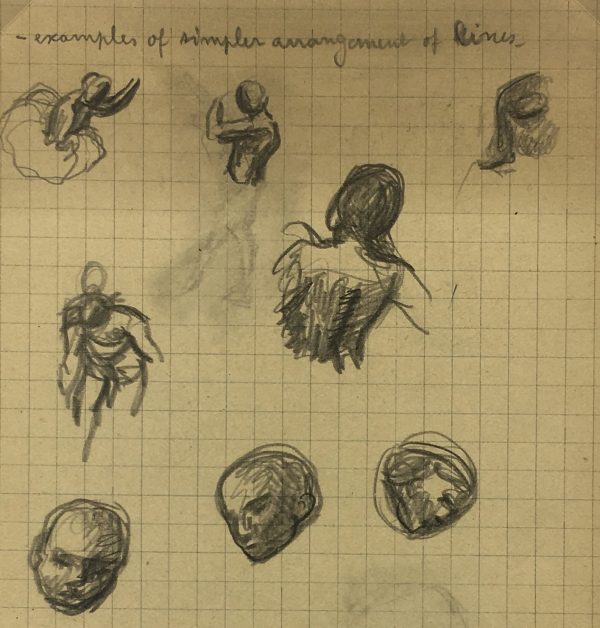 - examples of simpler arrangement of lines -